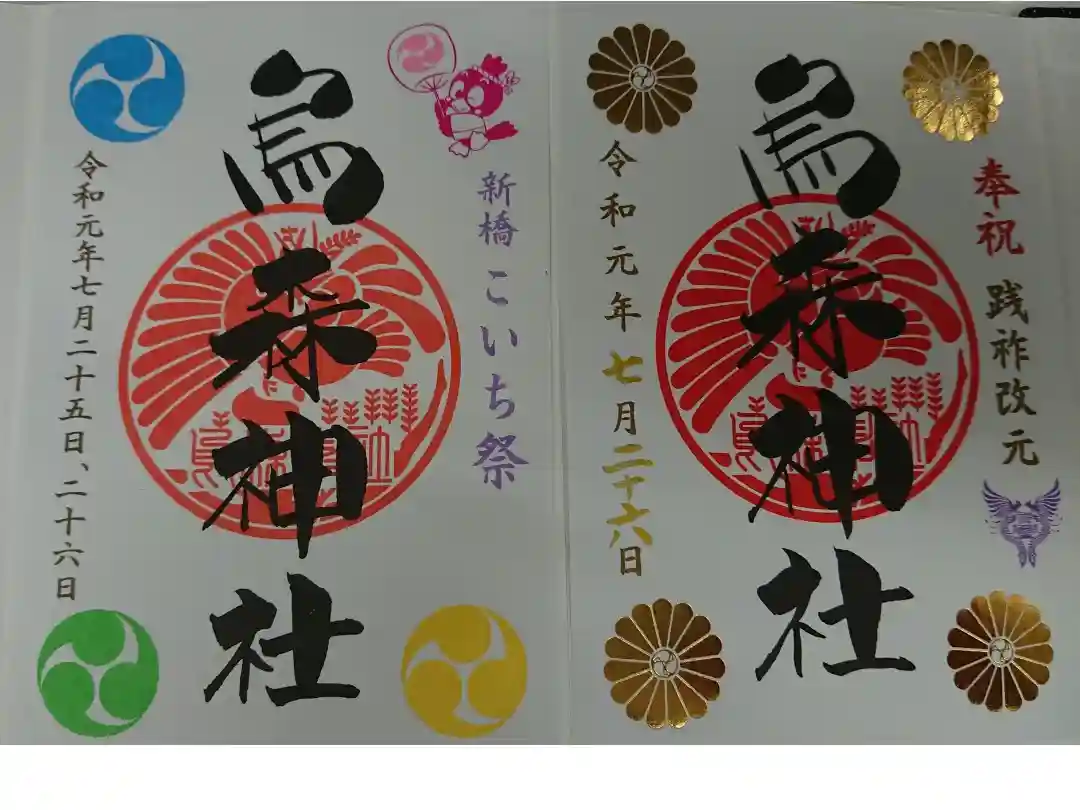 奉祝 践祚改元
烏森神社
令和元年七月二十六日
新橋こいち祭
烏森神社
令和元年七月二十五日、二十六日